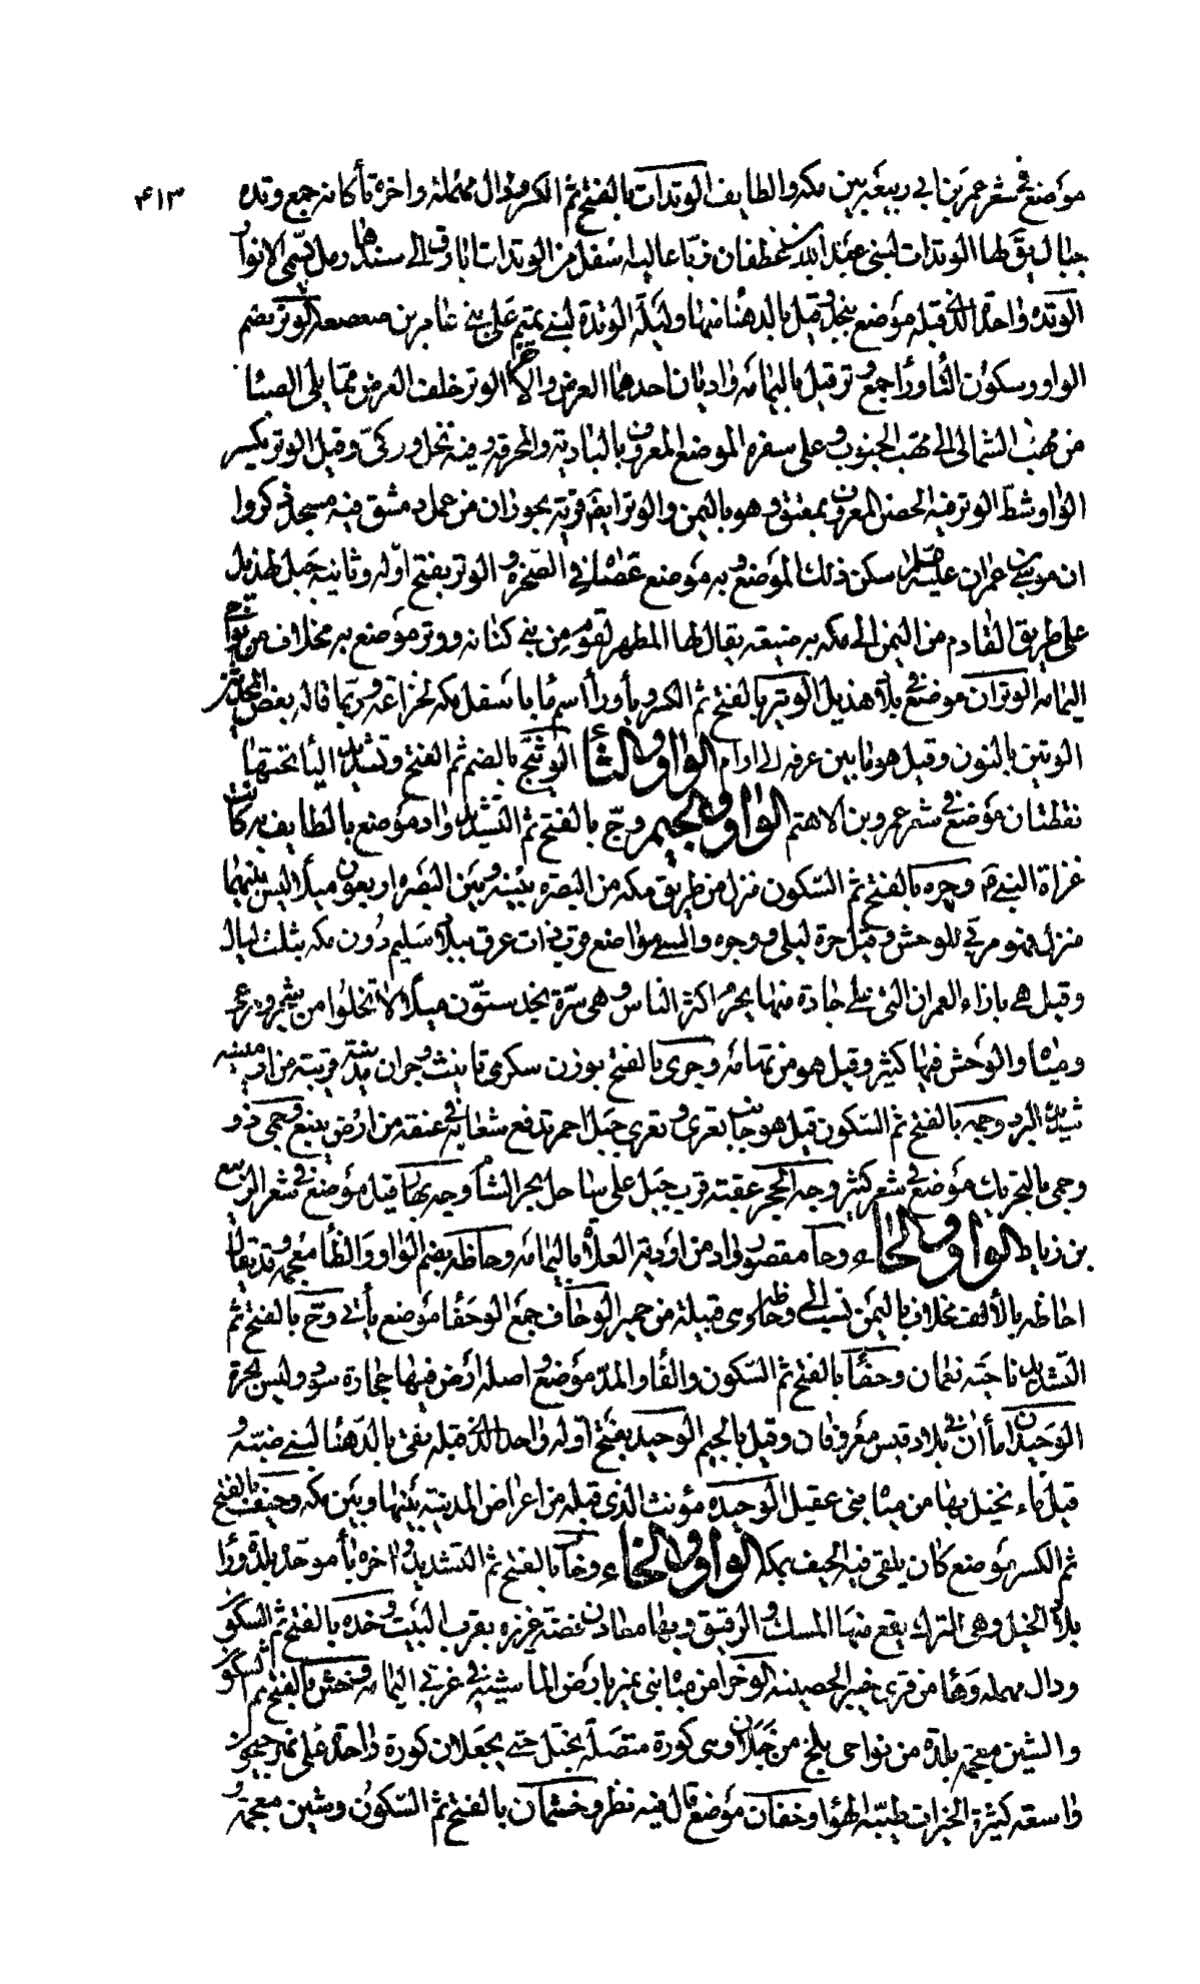 ۴۱۳
موضع في شعر عمر بن ابي ربيعة بين مكه والطايف الوتدات بالفتح ثم الكسر ودال مهملة واخره تأ كانه جمع وتده
جبال يق لها الوتدات لبنى عبد الله بن غطفان وباعاليه اسفل من الوتدات ابارق الى سندها رمل تسمى الانوار
الوتده واحدة الذى قبله موضع بنجد وقيل بالدهنا منها وليلة الوتدة لبنى تميم على بنى عامر بن صعصعه الوتر بضم
الواو وسكون التأ ورأ جمع وتر قيل باليمامه واديان احدهما العرض والاخر الوتر خلف العرض مما يلى الصبا
من مهب الشمال الى مهب الجنوب وعلى سفره الموضع المعروف بالباديه والمحرقه وفيه نخل وركى وقيل الوتر بكسر
الواو شط الوتر فيه الحصن المعروف بمعنق وهو باليمن والوتر ايضا قرية بحوران من عمل دمشق فيه مسجد ذكروا
ان موسى بن عمران عليه السلام سكن ذلك الموضع وبه موضع عصاه في الصخره والوتر بفتح اوله وثانيه جبل لهذيل
على طريق القادم من اليمن الى مكه به ضيعة يقال لها المطهر لقوم من بنى كنانه ووتر موضع به مخلاف من
اليمامه الوتران موضع في بلاد هذيل الوتير بالفتح ثم الكسر ويأ ورأ اسم مأ باسفل مكه لخزاعه وربما قاله بعض المحدثين
الوتين بالنون وقيل هو ما بين عرفه الى ادام الواو والثأ الوثيج بالضم ثم الفتح وتشديد اليأ تحتها
نقطتان موضع في شعر عمرو بن الاهتم الواو والجيم وجّ بالفتح ثم التشديد واد موضع بالطايف به كانت
غزاة النبي وجره بالفتح ثم السكون منزل من طريق مكه من البصره بينه وبين البصره اربعون ميلا ليس بينهما
منزل فهو مربى للوحش وقيل حرة ليلى ووجره والسى مواضع قرب ذات عرق ببلاد سليم دون مكه بثلث ليال
وقيل هي بازاء العمران التى على جادة منها يحرم اكثر الناس وهى سرة نجد ستون ميلا لا تخلوا من شجر ومرعى
ومياه والوحش فيها كثير وقيل هو من تهامه وجرى بالفتح بوزن سكرى تانيث وجران مدينه قريبة من ارمينيه
شديد البرد وجمه بالفتح ثم السكون قيل هو جانب بعرى وبعرى جبل احمر تدفع شعابه في غيقه من ارض ينبع وجمى ذو
وجمى بالتحريك موضع في شعر كثير وجه الحجر عقبة قرب جبل على ساحل بحر الشام وجه نهار قيل موضع في شعر الربيع
بن زياد الواو والحاء وحا مقصور واد من اودية العلاة باليمامه وحاظه بضم الواو والظأ معجمه وقد يقال
احاظه بالألف مخلاف باليمن ينسب الى وحاظه وهى قبيلة من حمير الوحاف جمع الوحفا موضع يأتى وحّ بالفتح ثم
التشديد ناحية نعمان وحفأ بالفتح ثم السكون والفأ والمد موضع واصله ارض فيها حجارة سود وليس بحرة
الوحيدان مأان في بلاد قيس معروفان وقيل بالجيم الوحيد بفتح اوله واحد الذى قبله نقى بالدهنا لبنى ضبه و
قيل ماء نخيل بها من مياه بنى عقيل الوحيده مؤنث الذى قبله من اعراض المدينة بينها وبين مكه وحيف بالفتح
ثم الكسر موضع كان يلقى فيه الجيف بمكه الواو والخاء وخاب بالفتح ثم التشديد واخره بأ موحده بلدة ورأ
بلاد الختل وهى الترك يقع منها المسك والرقيق وبها معادن فضة غزيره بقرب التبت وخده بالفتح ثم السكون
ودال مهمله وهأ من قرى خيبر الحصينه الوخرا من مياه بنى نمير بارض الماشيه في غربى اليمامه وخش بالفتح ثم السكون
والشين معجمه بلدة من نواحى بلخ من ختلان وهى كورة متصلة بختل حتى يجعلان كورة واحدة على نهر جيحون
واسعه كثيرة الخيرات طيبه الهوا وخفان موضع قال فيه نظر وخشمان بالفتح ثم السكون وشين معجمه و